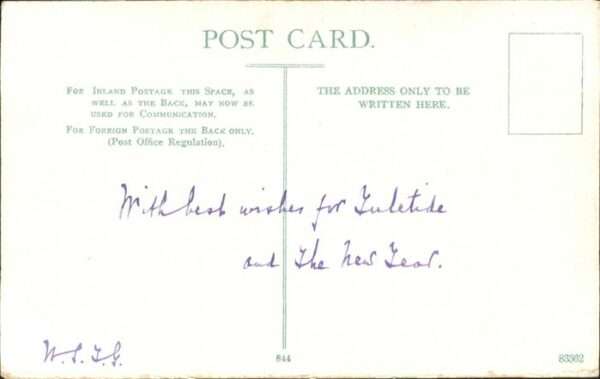 POST CARD.
FOR INLAND POSTAGE THIS SPACE, AS
WELL AS THE BACK, MAY NOW BE
USED FOR COMMUNICATION.
FOR FOREIGN POSTAGE THE BACK ONLY.
(Post Office Regulation).
THE ADDRESS ONLY TO BE
WRITTEN HERE.
With best wishes for Yuletide
and The New Year.
844
83302